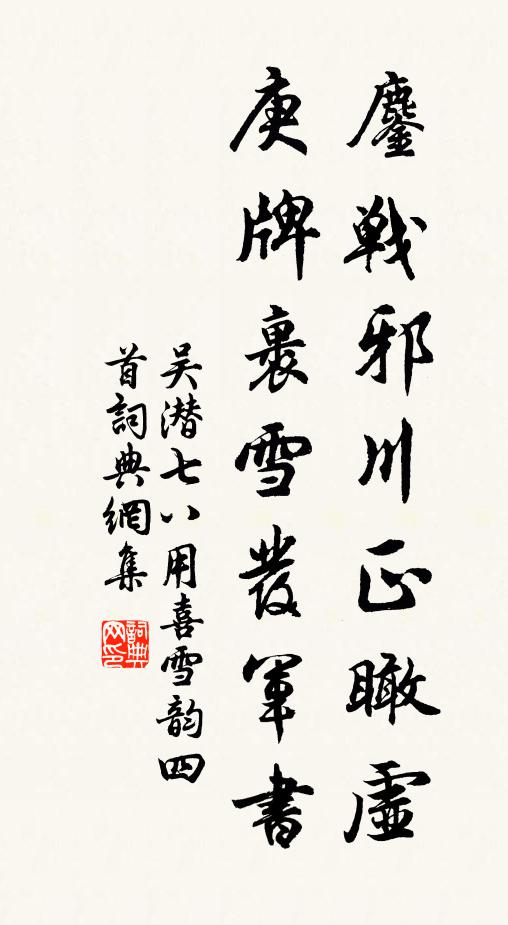 鏖戦邪川正瞰虛
庚牌裹雪發軍書
吴潜七八用喜雪韵四
首詞典網集
詞典网印